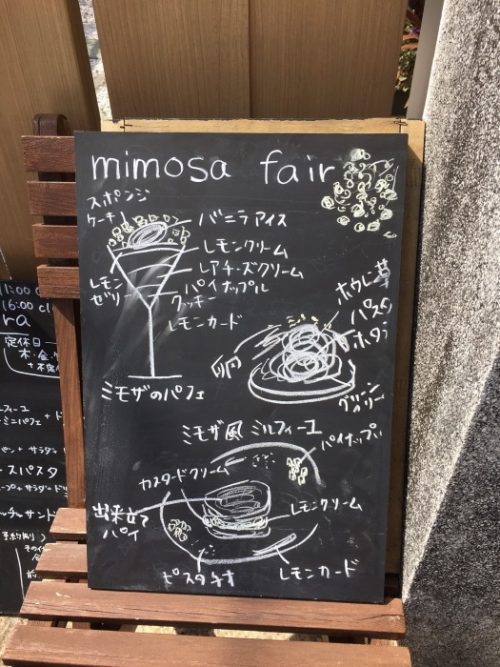 mimosa fair
スポンジ
ケーキ
バニラアイス
レモンクリーム
レアチーズクリーム
パイナップル
クッキー
レモンカード
レモン
ゼリー
ミモザのパフェ
ホウレン草
パスタ
ホタテ
卵
グリーン
ミモザ風 ミルフィーユ
パイナップル
カスタードクリーム
レモンクリーム
出来立て
パイ
ピスタチオ
レモンカード
11:00
16:00
ra
定休日
木・金
スパスタ